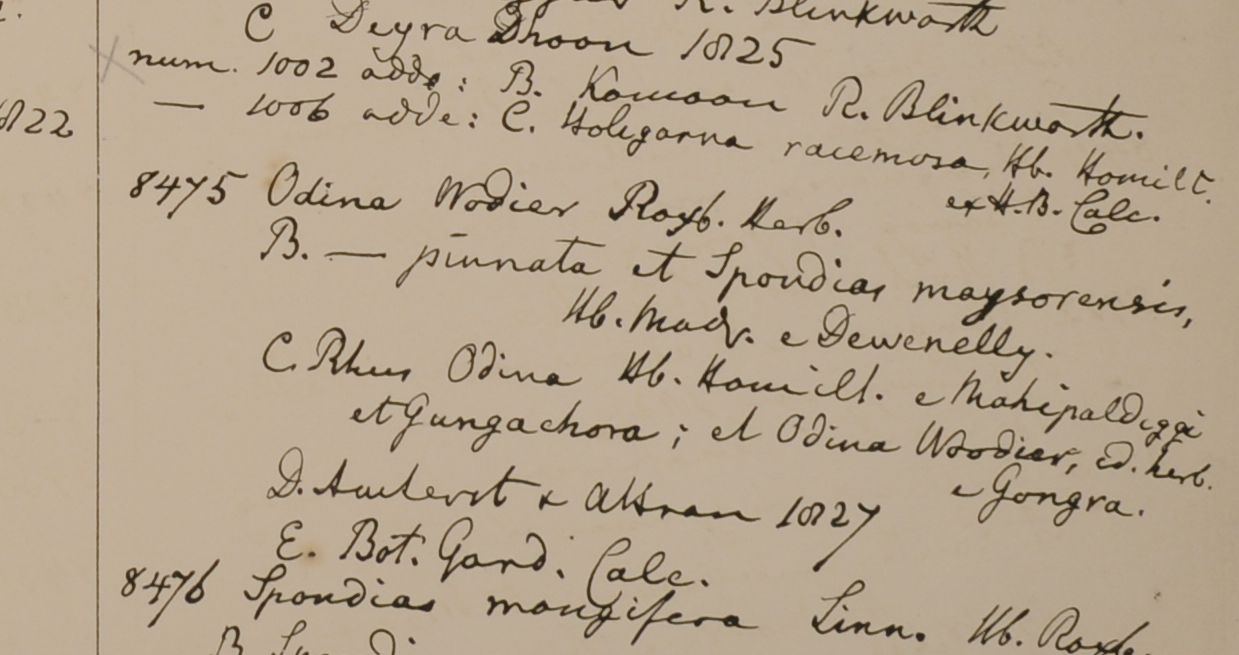 R. Blinkworth
C Deyra Dhoon 1825
num. 1002 adde: B. Komoon R. Blinkworth.
1822
— 1006 adde: C. Holigarna racemosa, Hb. Hamilt.
ex H.B. Calc.
8475 Odina Wodier Roxb. Herb.
B. — pinnata et Spondias maysorensis,
Hb. Madr. e Dewenelly.
C. Rhus Odina Hb. Hamilt. e Mahipaldiggi
et Gungachora; et Odina Woodier, ed. herb.
e Gongra.
D. Amherst & Attran 1827
E. Bot. Gard. Calc.
8476 Spondias mangifera Linn. Hb. Roxb.
B